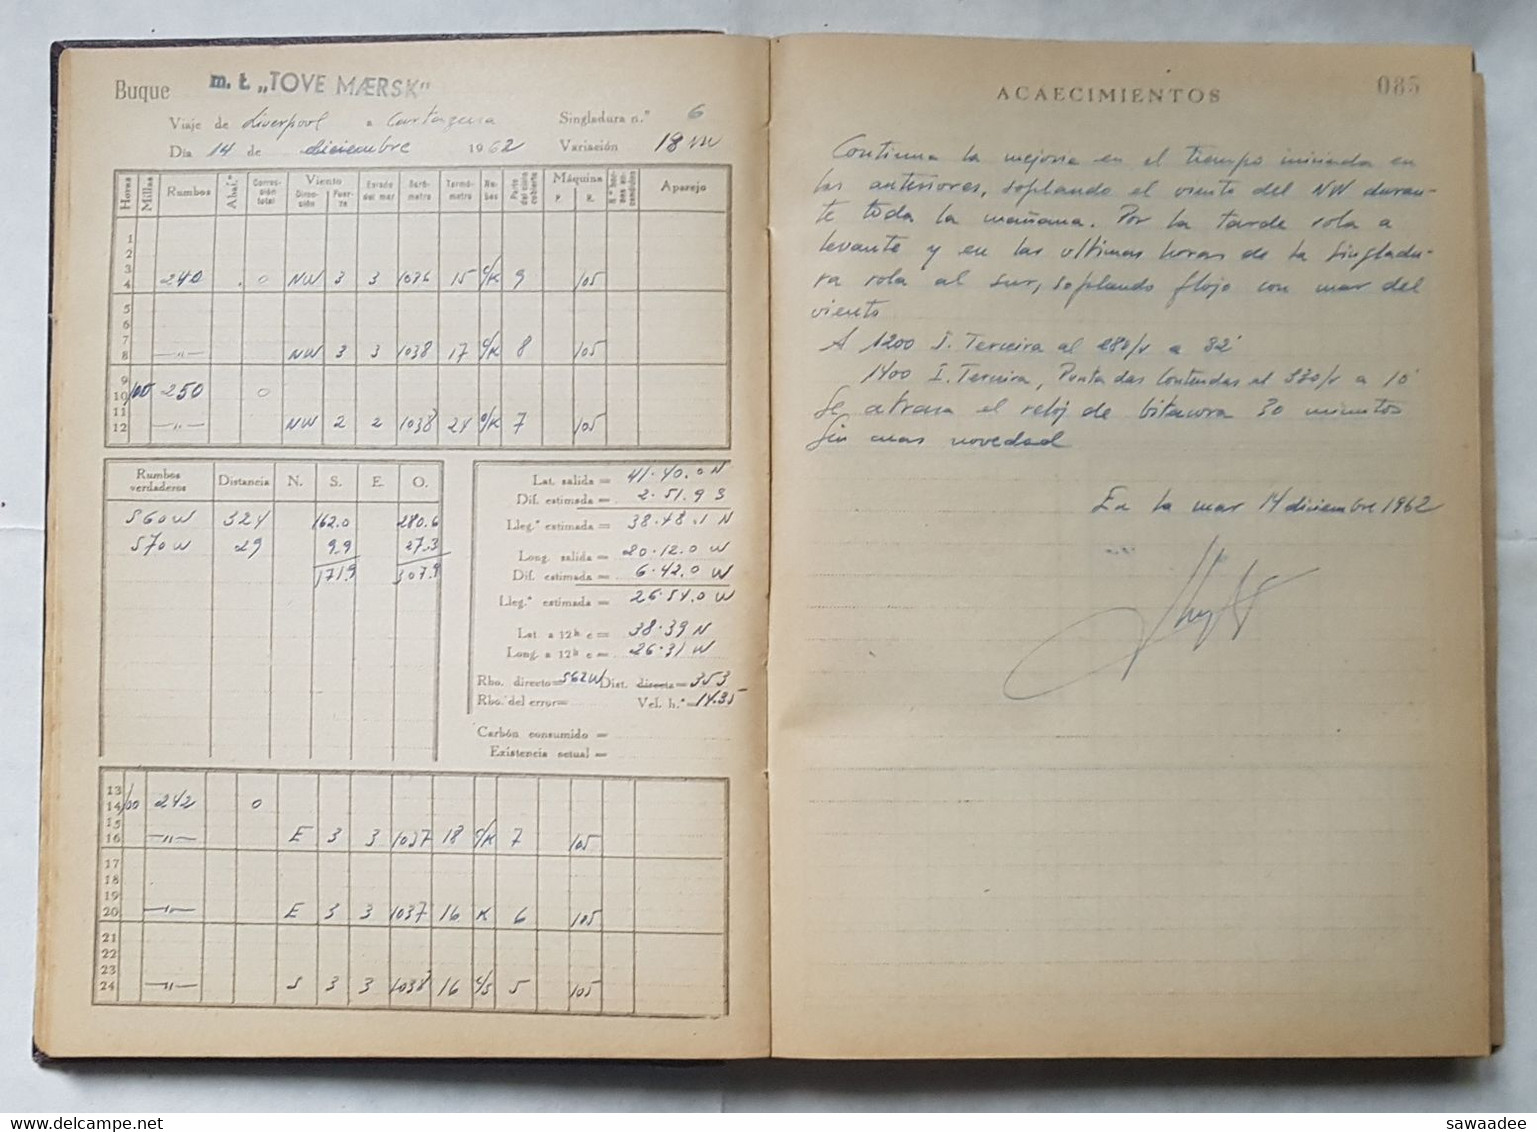 Buque m. t. „TOVE MÆRSK"
Viaje de Liverpool a Cartagena Singladura n.° 6
Día 14 de diciembre 1962 Variación 18 NW
Horas Millas Rumbos Abat.° Corrección total Viento Dirección Fuerza Estado del mar Barómetro Termómetro Nubes Parte del cielo cubierta Máquina P. R. Aparejo
1
2
3
4 240 0 NW 3 3 1036 15 c/K 9 105
5
6
7
8 —"— NW 3 3 1038 17 c/K 8 105
9
10 100 250 0
11
12 —"— NW 2 2 1038 24 c/K 7 105
Rumbos verdaderos Distancia N. S. E. O.
S60W 324 162.0 280.6
S70W 29 9.9 27.3
171.9 307.9
Lat. salida = 41-40.0 N
Dif. estimada = 2-51.9 S
Lleg.ª estimada = 38-48.1 N
Long. salida = 20-12.0 W
Dif. estimada = 6-42.0 W
Lleg.ª estimada = 26-54.0 W
Lat. a 12h e = 38-39 N
Long. a 12h e = 26-31 W
Rbo. directo = S62W Dist. directa = 353
Rbo. del error = Vel. h.ª = 14.35
Carbón consumido =
Existencia actual =
13
14 100 242 0
15
16 —"— E 3 3 1037 18 c/K 7 105
17
18
19
20 —"— E 3 3 1037 16 K 6 105
21
22
23
24 —"— S 3 3 1038 16 c/s 5 105
ACAECIMIENTOS 085
Continua la mejoria en el tiempo iniciada en
las anteriores, soplando el viento del NW duran-
te toda la mañana. Por la tarde rola a
levante y en las ultimas horas de la singladu-
ra rola al sur, soplando flojo con mar del
viento
A 1200 I. Terceira al 280/v a 32'
1400 I. Terceira, Punta das Contendas al 330/v a 10'
Se atrasa el reloj de bitacora 30 minutos
Sin mas novedad
En la mar 14 diciembre 1962
delcampe.net
sawaadee